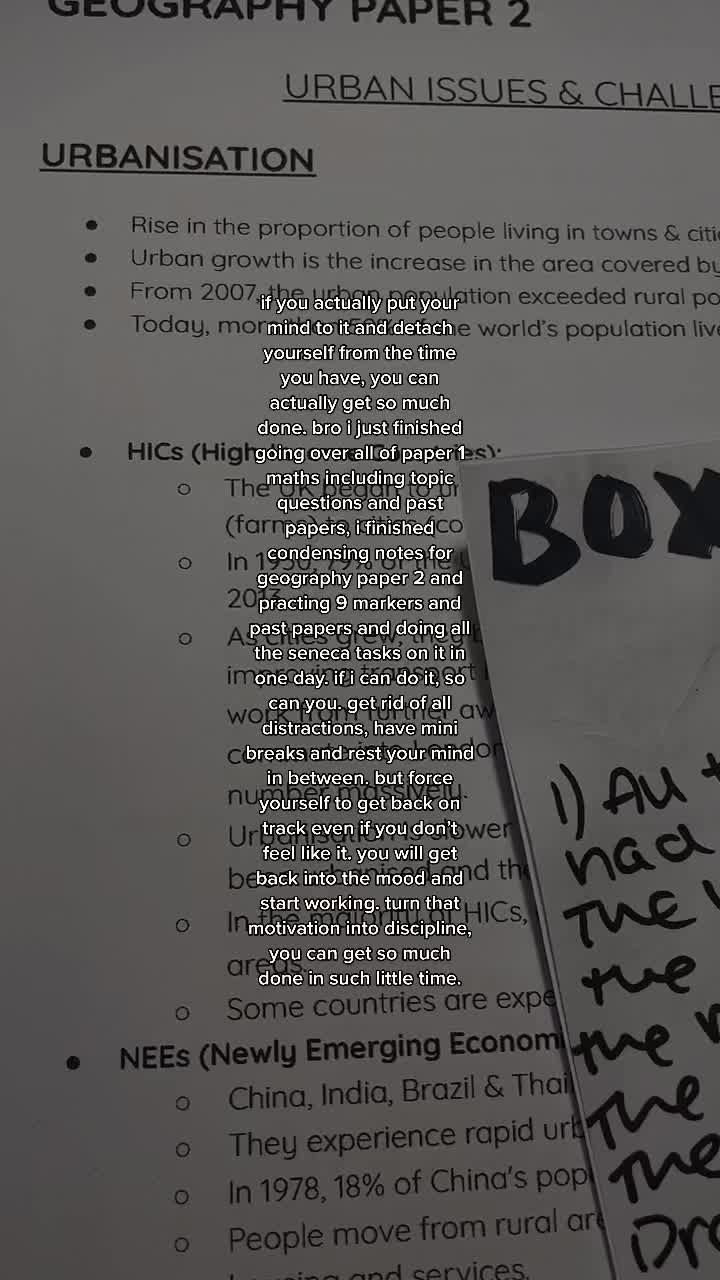 GEOGRAPHY PAPER 2
URBAN ISSUES & CHALLE
URBANISATION
Rise in the proportion of people living in towns & citi
Urban growth is the increase in the area covered by
From 2007, the urban population exceeded rural po
Today, mor 50% of the world's population live
if you actually put your
mind to it and detach
yourself from the time
you have, you can
actually get so much
done. bro i just finished
going over all of paper 1
maths including topic
questions and past
papers, i finished
condensing notes for
geography paper 2 and
practing 9 markers and
past papers and doing all
the seneca tasks on it in
one day. if i can do it, so
can you. get rid of all
distractions, have mini
breaks and rest your mind
in between. but force
yourself to get back on
track even if you don't
feel like it. you will get
back into the mood and
start working. turn that
motivation into discipline,
you can get so much
done in such little time.
HICs (High
The UK began to ur
(farm
In 1950, 79% of the
As cities grew, they
improving transport
work from further aw
London
number massively.
Urbanisation is slower
be and the
In the majority of HICs,
areas.
Some countries are expe
NEEs (Newly Emerging Econom
China, India, Brazil & Thai
They experience rapid urb
In 1978, 18% of China's pop
People move from rural are
housing and services.
BOX
1) All t
had
The
the
the
The
The
pro